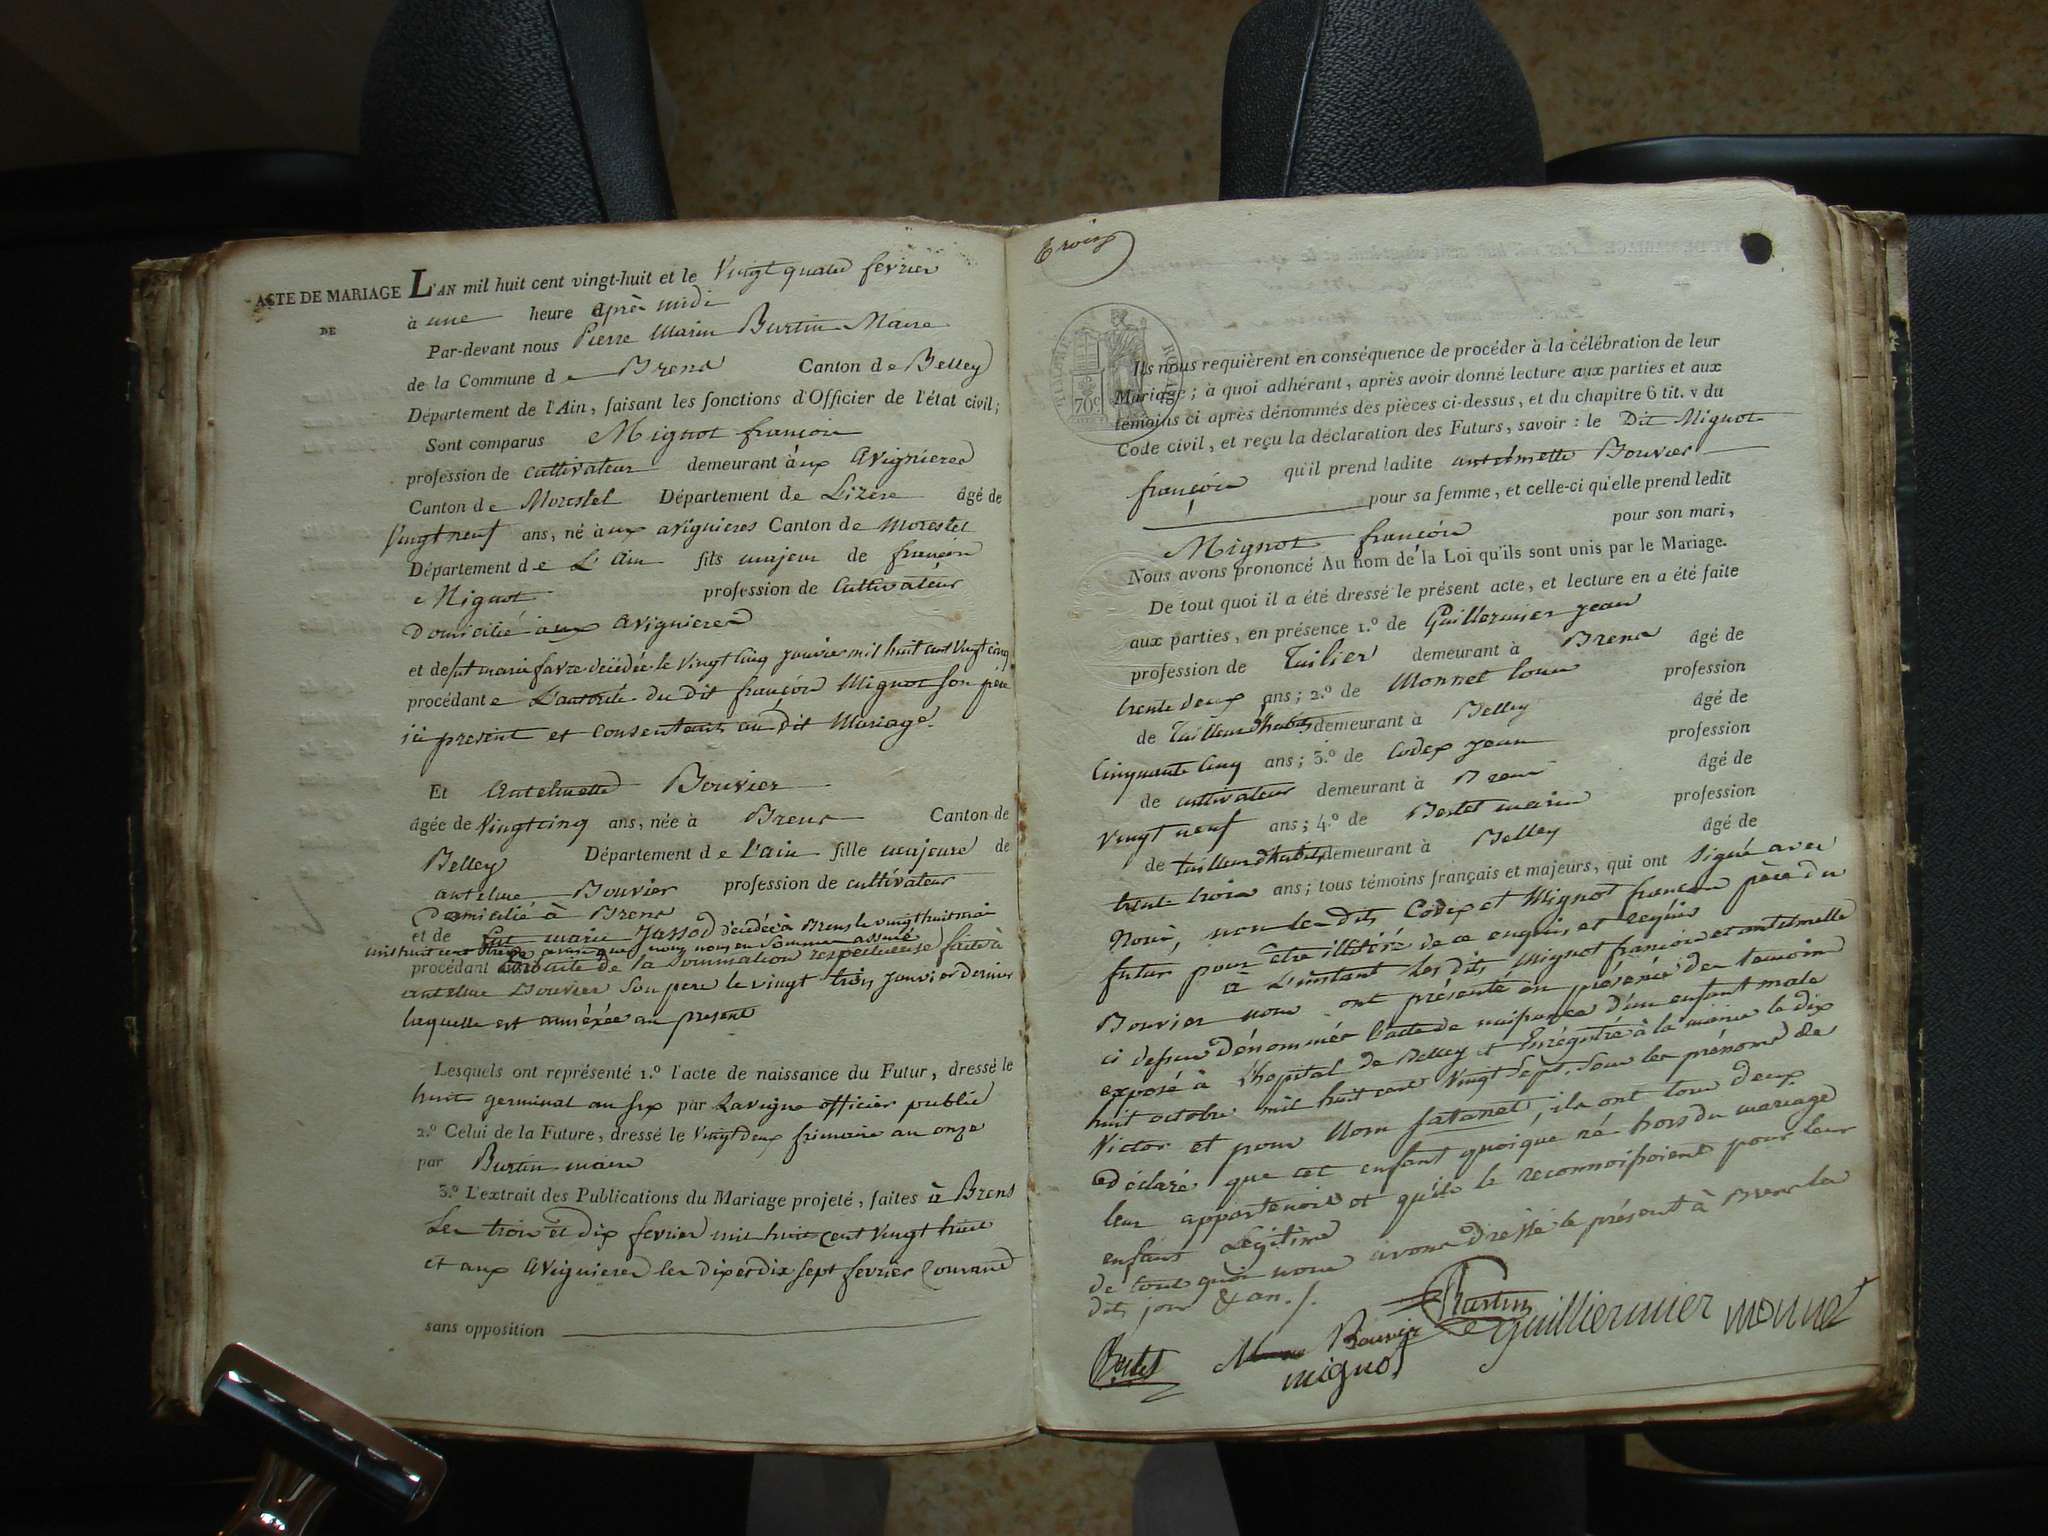 ACTE DE MARIAGE
DE
L'AN mil huit cent vingt-huit et le Vingt quatre fevrier
à une heure après midi
Par-devant nous Pierre Marin Burtin Maire
de la Commune de Brens Canton de Belley
Département de l'Ain, faisant les fonctions d'Officier de l'état civil;
Sont comparus Mignot françois
profession de cultivateur demeurant àux Avignieres
Canton de Morestel Département de Lizere âgé de
Vingt neuf ans, né àux avignieres Canton de Morestel
Département de L'Ain fils majeur de françois
Mignot profession de Cultivateur
Domicilié aux Avignieres
et de fut marie favre décédée le Vingt cinq janvier mil huit cent Vingt cinq
procédant e L'autorité du dit françois Mignot son père
ici present et Consentant au dit Mariage.
Et Antelmette Bouvier
âgée de Vingt cinq ans, née à Brens Canton de
Belley Département de L'ain fille majeure de
antelme Bouvier profession de cultivateur
Domicilié à Brens
et de fut marie Jassod décédée à Brens le vingt huit mai
mil huit cent ainsi que nous nous en sommes assuré
procédant ensuite de la Sommation respectueuse faite à
antelme Bouvier Son pere le vingt trois janvier dernier
laquelle est annéxée au present
Lesquels ont représenté 1.º l'acte de naissance du Futur, dressé le
huit germinal an six par Lavigne officier public
2.º Celui de la Future, dressé le Vingt deux frimaire an onze
par Burtin maire
3.º L'extrait des Publications du Mariage projeté, faites à Brens
Les trois et dix fevrier mil huit cent Vingt huit
et aux Avignieres les dix et dix sept fevrier Courant
sans opposition
Trois
TIMBRE ROYAL
70c
Ils nous requièrent en conséquence de procéder à la célébration de leur
Mariage; à quoi adhérant, après avoir donné lecture aux parties et aux
témoins ci après dénommés des pièces ci-dessus, et du chapitre 6 tit. v du
Code civil, et reçu la déclaration des Futurs, savoir: le Dit Mignot
françois qu'il prend ladite antelmette Bouvier
pour sa femme, et celle-ci qu'elle prend ledit
Mignot françois pour son mari,
Nous avons prononcé Au nom de la Loi qu'ils sont unis par le Mariage.
De tout quoi il a été dressé le présent acte, et lecture en a été faite
aux parties, en présence 1.º de Guillermier jean
profession de Tuilier demeurant à Brens âgé de
trente deux ans; 2.º de Monnet louis profession
de Tailleur d'habits demeurant à Belley âgé de
Cinquante Cinq ans; 3.º de Codex jean profession
de cultivateur demeurant à Brens âgé de
Vingt neuf ans; 4.º de Bertet marin profession
de tailleur d'habits demeurant à Belley âgé de
trente trois ans; tous témoins français et majeurs, qui ont signé avec
Nous, non les dits Codex et Mignot francois père du
futur pour être illitéré de ce enquis et requis
à L'instant Les dits Mignot francois et antelmette
Bouvier nous ont présenté en présence des temoins
ci dessus dénommés l'acte de naissance d'un enfant male
exposé à L'hopital de Belley et Enrégistré à la mairie le dix
huit octobre mil huit cent Vingt sept, sous les prénoms de
Victor et pour Nom Satanet, ils ont tous deux
déclaré que cet enfant quoique né hors du mariage
leur appartenoit et qu'ils le reconnoissoient pour leur
enfant Légitime
de tout quoi nous avons dressé le présent à Brens les
dits jour & an ./.
Burtin
Bertet Bouvier Guilliermier monnet
mignot